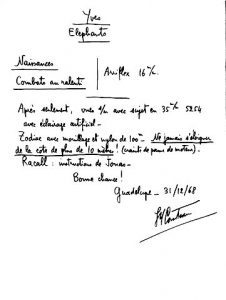 Yves
Elephants
Naissances
Combats au ralenti
Arriflex 16 %
Après seulement, vues s/m avec sujet en 35 %
avec éclairage artificiel -
Zodiac avec mouillage et nylon de 100m - Ne jamais s'éloigner
de la côte de plus de 10 mètres ! (crainte de panne de moteur).
Racall : instructions de Jonas -
Bonne chance !
Guadalupe - 31/12/68